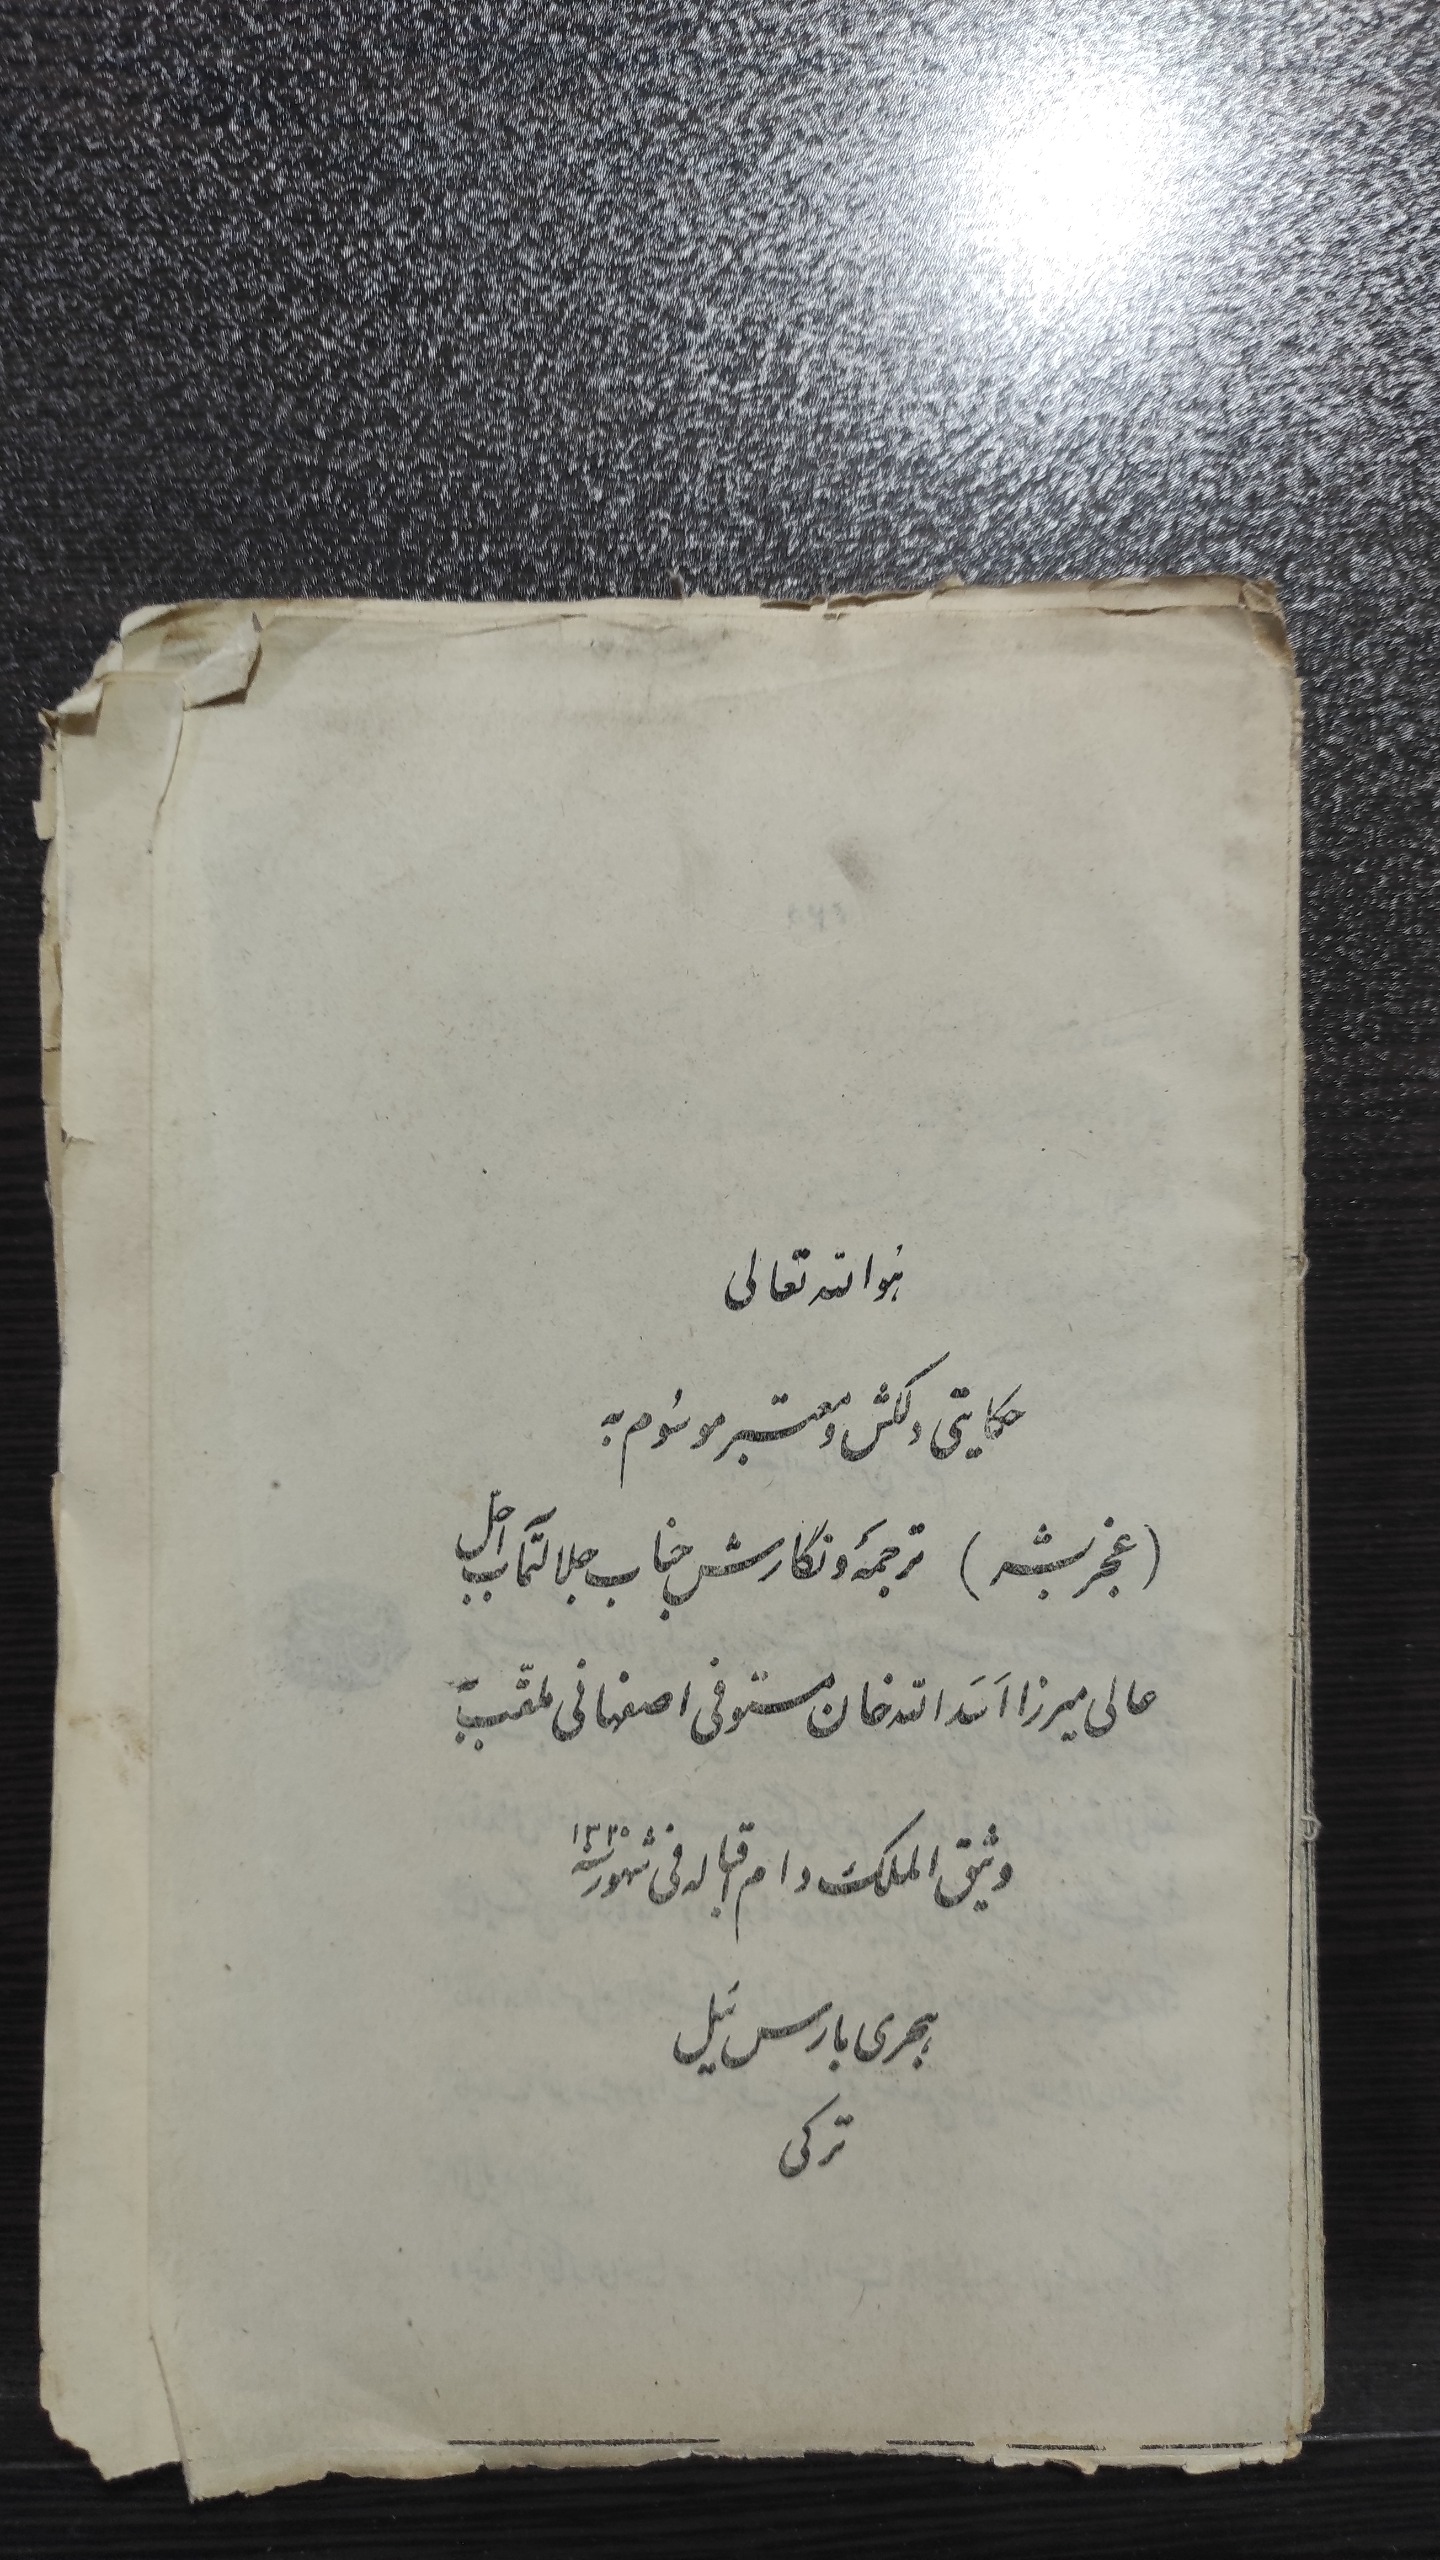 هو الله تعالی
حکایتی دلکش و معتبر موسوم به
(غجر بشه) ترجمهٔ و نگارش جناب جلالتمآب اجل
عالی میرزا اسدالله خان مستوفی اصفهانی ملقب به
وثیق الملک دام اقباله فی شهور سنه ۱۳۳۰
هجری بارس ئیل
ترکی